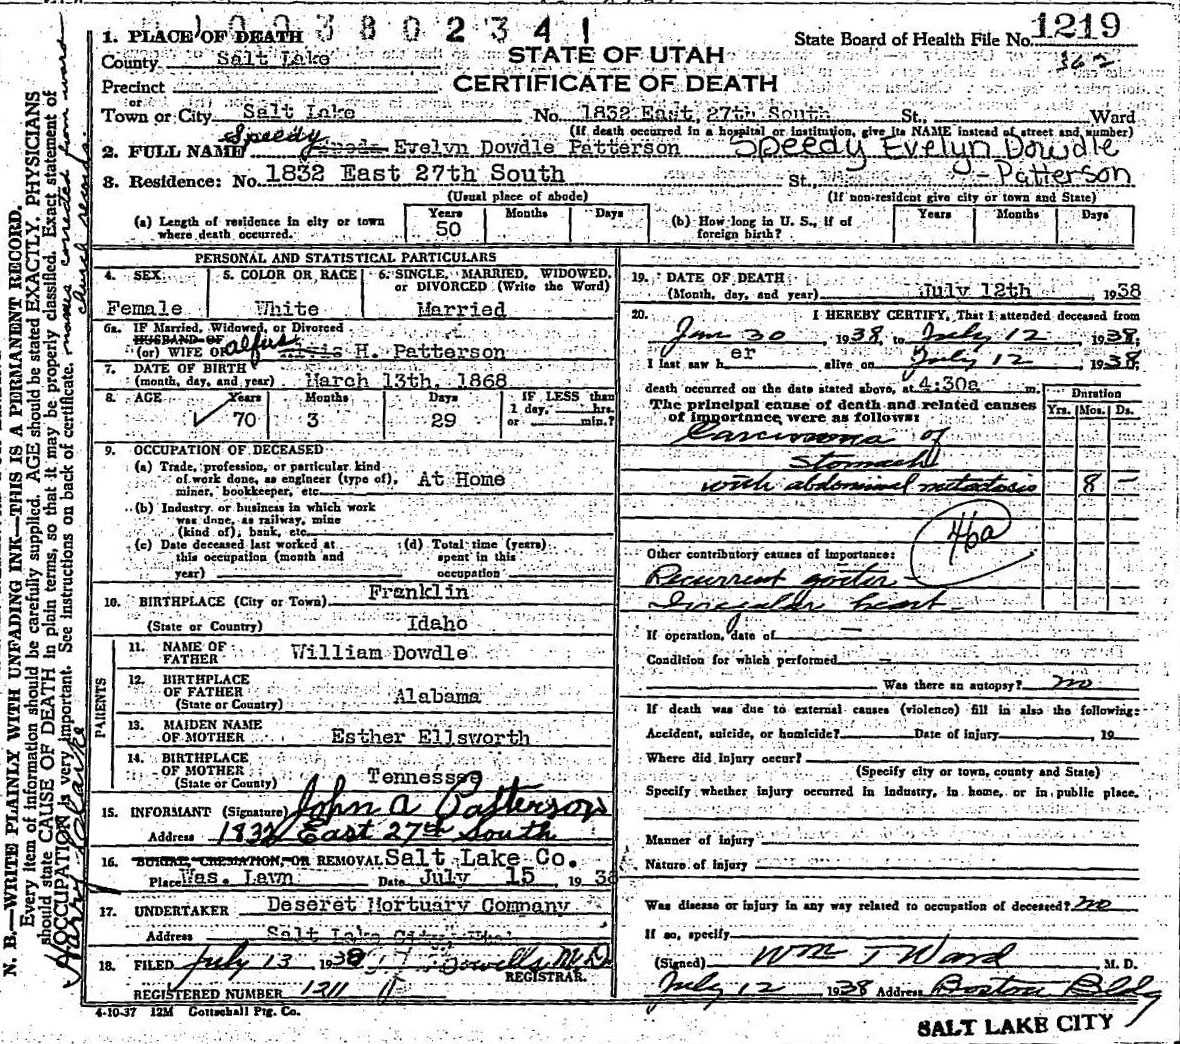 1003802341
1. PLACE OF DEATH
County Salt Lake
STATE OF UTAH
CERTIFICATE OF DEATH
State Board of Health File No. 1219
362
Precinct
or
Town or City Salt Lake No. 1832 East, 27th South St., Ward
(If death occurred in a hospital or institution, give its NAME instead of street and number)
2. FULL NAME Speedy Evelyn Dowdle Patterson Speedy Evelyn Dowdle
- Patterson
3. Residence: No. 1832 East 27th South St.,
(Usual place of abode) (If non-resident give city or town and State)
(a) Length of residence in city or town where death occurred. Years 50 Months Days
(b) How long in U. S., if of foreign birth? Years Months Days
PERSONAL AND STATISTICAL PARTICULARS
4. SEX Female
5. COLOR OR RACE White
6. SINGLE, MARRIED, WIDOWED, or DIVORCED (Write the Word) Married
6a. IF Married, Widowed, or Divorced
HUSBAND OF
(or) WIFE OF Alfus H. Patterson
7. DATE OF BIRTH
(month, day, and year) March 13th, 1868
8. AGE Years 70 Months 3 Days 29 IF LESS than 1 day, hrs. or min.?
9. OCCUPATION OF DECEASED
(a) Trade, profession, or particular kind
of work done, as engineer (type of),
miner, bookkeeper, etc. At Home
(b) Industry or business in which work
was done, as railway, mine
(kind of); bank, etc.
(c) Date deceased last worked at
this occupation (month and
year)
(d) Total time (years)
spent in this
occupation
10. BIRTHPLACE (City or Town) Franklin
(State or Country) Idaho
PARENTS
11. NAME OF
FATHER William Dowdle
12. BIRTHPLACE
OF FATHER
(State or Country) Alabama
13. MAIDEN NAME
OF MOTHER Esther Ellsworth
14. BIRTHPLACE
OF MOTHER
(State or Country) Tennessee
15. INFORMANT (Signature) John A Patterson
Address 1832 East 27th South
16. BURIAL, CREMATION, OR REMOVAL Salt Lake Co.
Place Was. Lawn Date July 15, 1938
17. UNDERTAKER Deseret Mortuary Company
Address Salt Lake City,
18. FILED July 13 1938 Dowells M D
REGISTRAR.
REGISTERED NUMBER 1211
4-10-37 12M Gottschall Ptg. Co.
19. DATE OF DEATH
(Month, day, and year) July 12th 1938
20. I HEREBY CERTIFY, That I attended deceased from
Jan 30, 1938, to July 12, 1938;
I last saw her alive on July 12, 1938,
death occurred on the date stated above, at 4:30a m.
The principal cause of death and related causes
of importance were as follows:
Duration
Yrs. Mos. Ds.
Carcinoma of
stomach
with abdominal metastasis 8 -
46a
Other contributory causes of importance:
Recurrent goiter -
Irregular heart -
If operation, date of -
Condition for which performed -
Was there an autopsy? no
If death was due to external causes (violence) fill in also the following:
Accident, suicide, or homicide? Date of injury, 19
Where did injury occur?
(Specify city or town, county and State)
Specify whether injury occurred in industry, in home, or in public place.
Manner of injury
Nature of injury
Was disease or injury in any way related to occupation of deceased? no
If so, specify
(Signed) Wm T Ward M. D.
July 12 1938 Address Boston Bldg
SALT LAKE CITY
N. B.—WRITE PLAINLY WITH UNFADING INK—THIS IS A PERMANENT RECORD.
Every item of information should be carefully supplied. AGE should be stated EXACTLY. PHYSICIANS
should state CAUSE OF DEATH in plain terms, so that it may be properly classified. Exact statement of
OCCUPATION is very important. See instructions on back of certificate. names corrected from ward
church records.
Harry Clarke